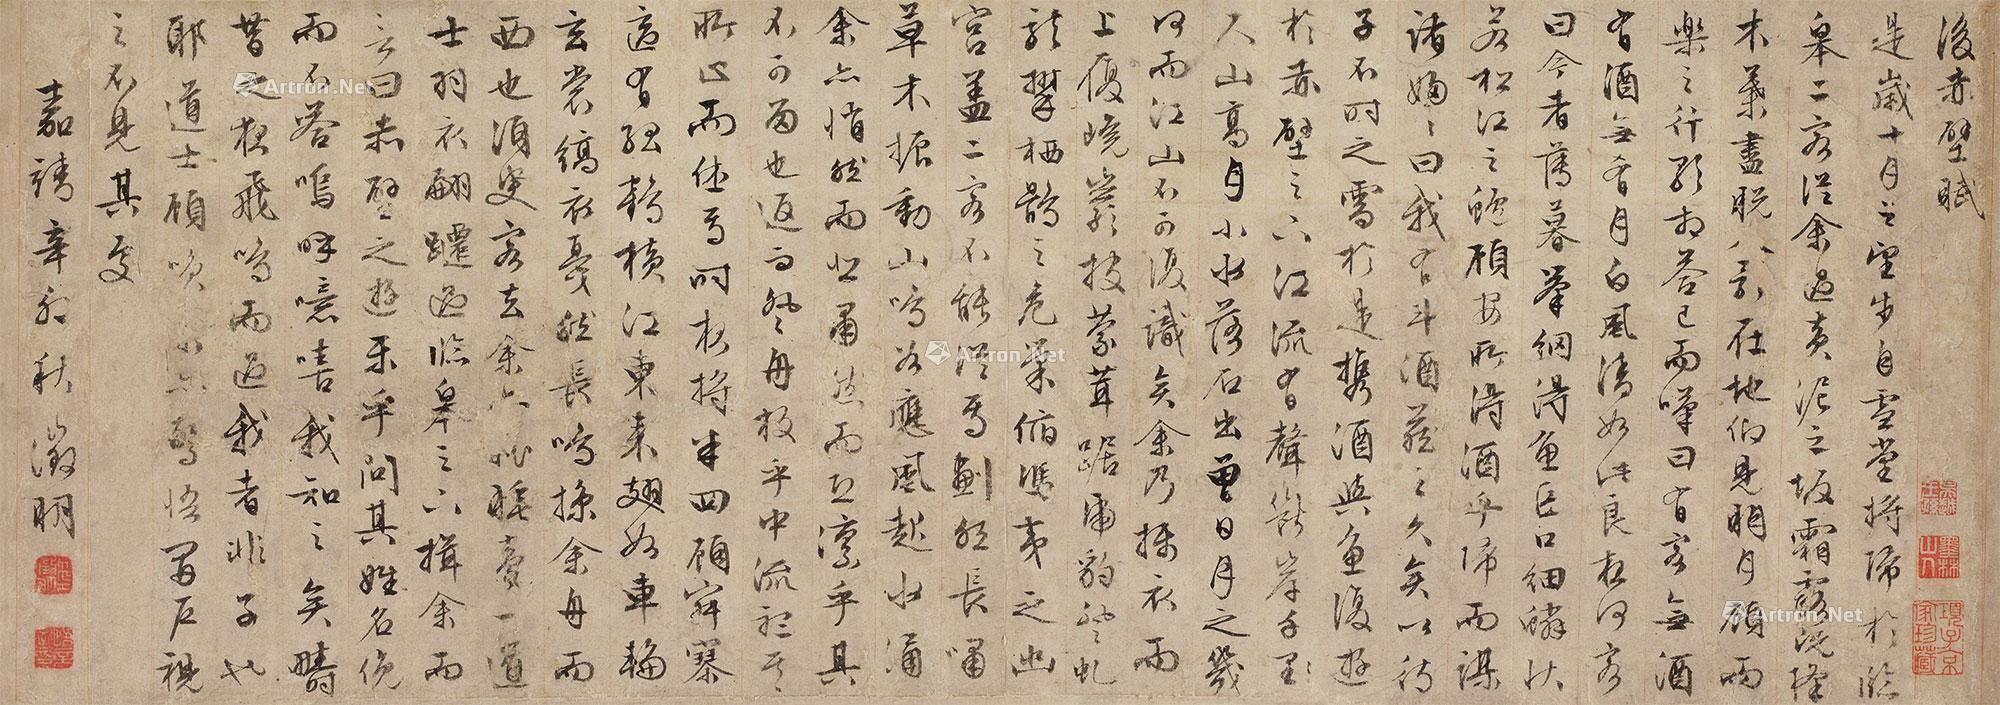 後赤壁賦
是歲十月之望步自雪堂將歸於臨
皋二客從余過黃泥之坂霜露既降
木葉盡脫人影在地仰見明月顧而
樂之行歌相答已而嘆曰有客無酒
有酒無肴月白風清如此良夜何客
曰今者薄暮舉網得魚巨口細鱗狀
若松江之鱸顧安所得酒乎歸而謀
諸婦婦曰我有斗酒藏之久矣以待
子不時之需於是攜酒與魚復遊
於赤壁之下江流有聲斷岸千尺
山高月小水落石出曾日月之幾
何而江山不可復識矣余乃攝衣而
上履巉巖披蒙茸踞虎豹登虬
龍攀栖鶻之危巢俯馮夷之幽
宮蓋二客不能從焉劃然長嘯
草木振動山鳴谷應風起水涌
余亦悄然而悲肅然而恐凜乎其
不可留也返而登舟放乎中流聽其
所止而休焉時夜將半四顧寂寥
適有孤鶴橫江東來翅如車輪
玄裳縞衣戛然長鳴掠余舟而
西也須臾客去余亦就睡夢一道
士羽衣翩躚過臨皋之下揖余而
言曰赤壁之遊樂乎問其姓名俛
而不答嗚呼噫嘻我知之矣疇
昔之夜飛鳴而過我者非子也
耶道士顧笑余亦驚悟開戶視
之不見其處
嘉靖辛卯秋徵明
Artron.Net
Artron.Net
Artron.Net